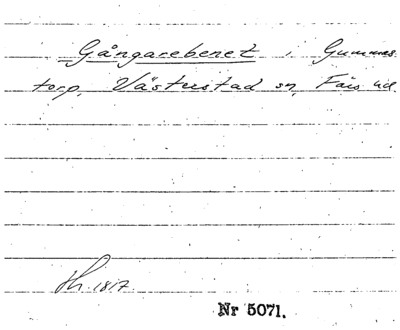 Gångarebenet i Gummas
torp. Västustad sn, Färs hd
Sh. 1817
Nr 5071.